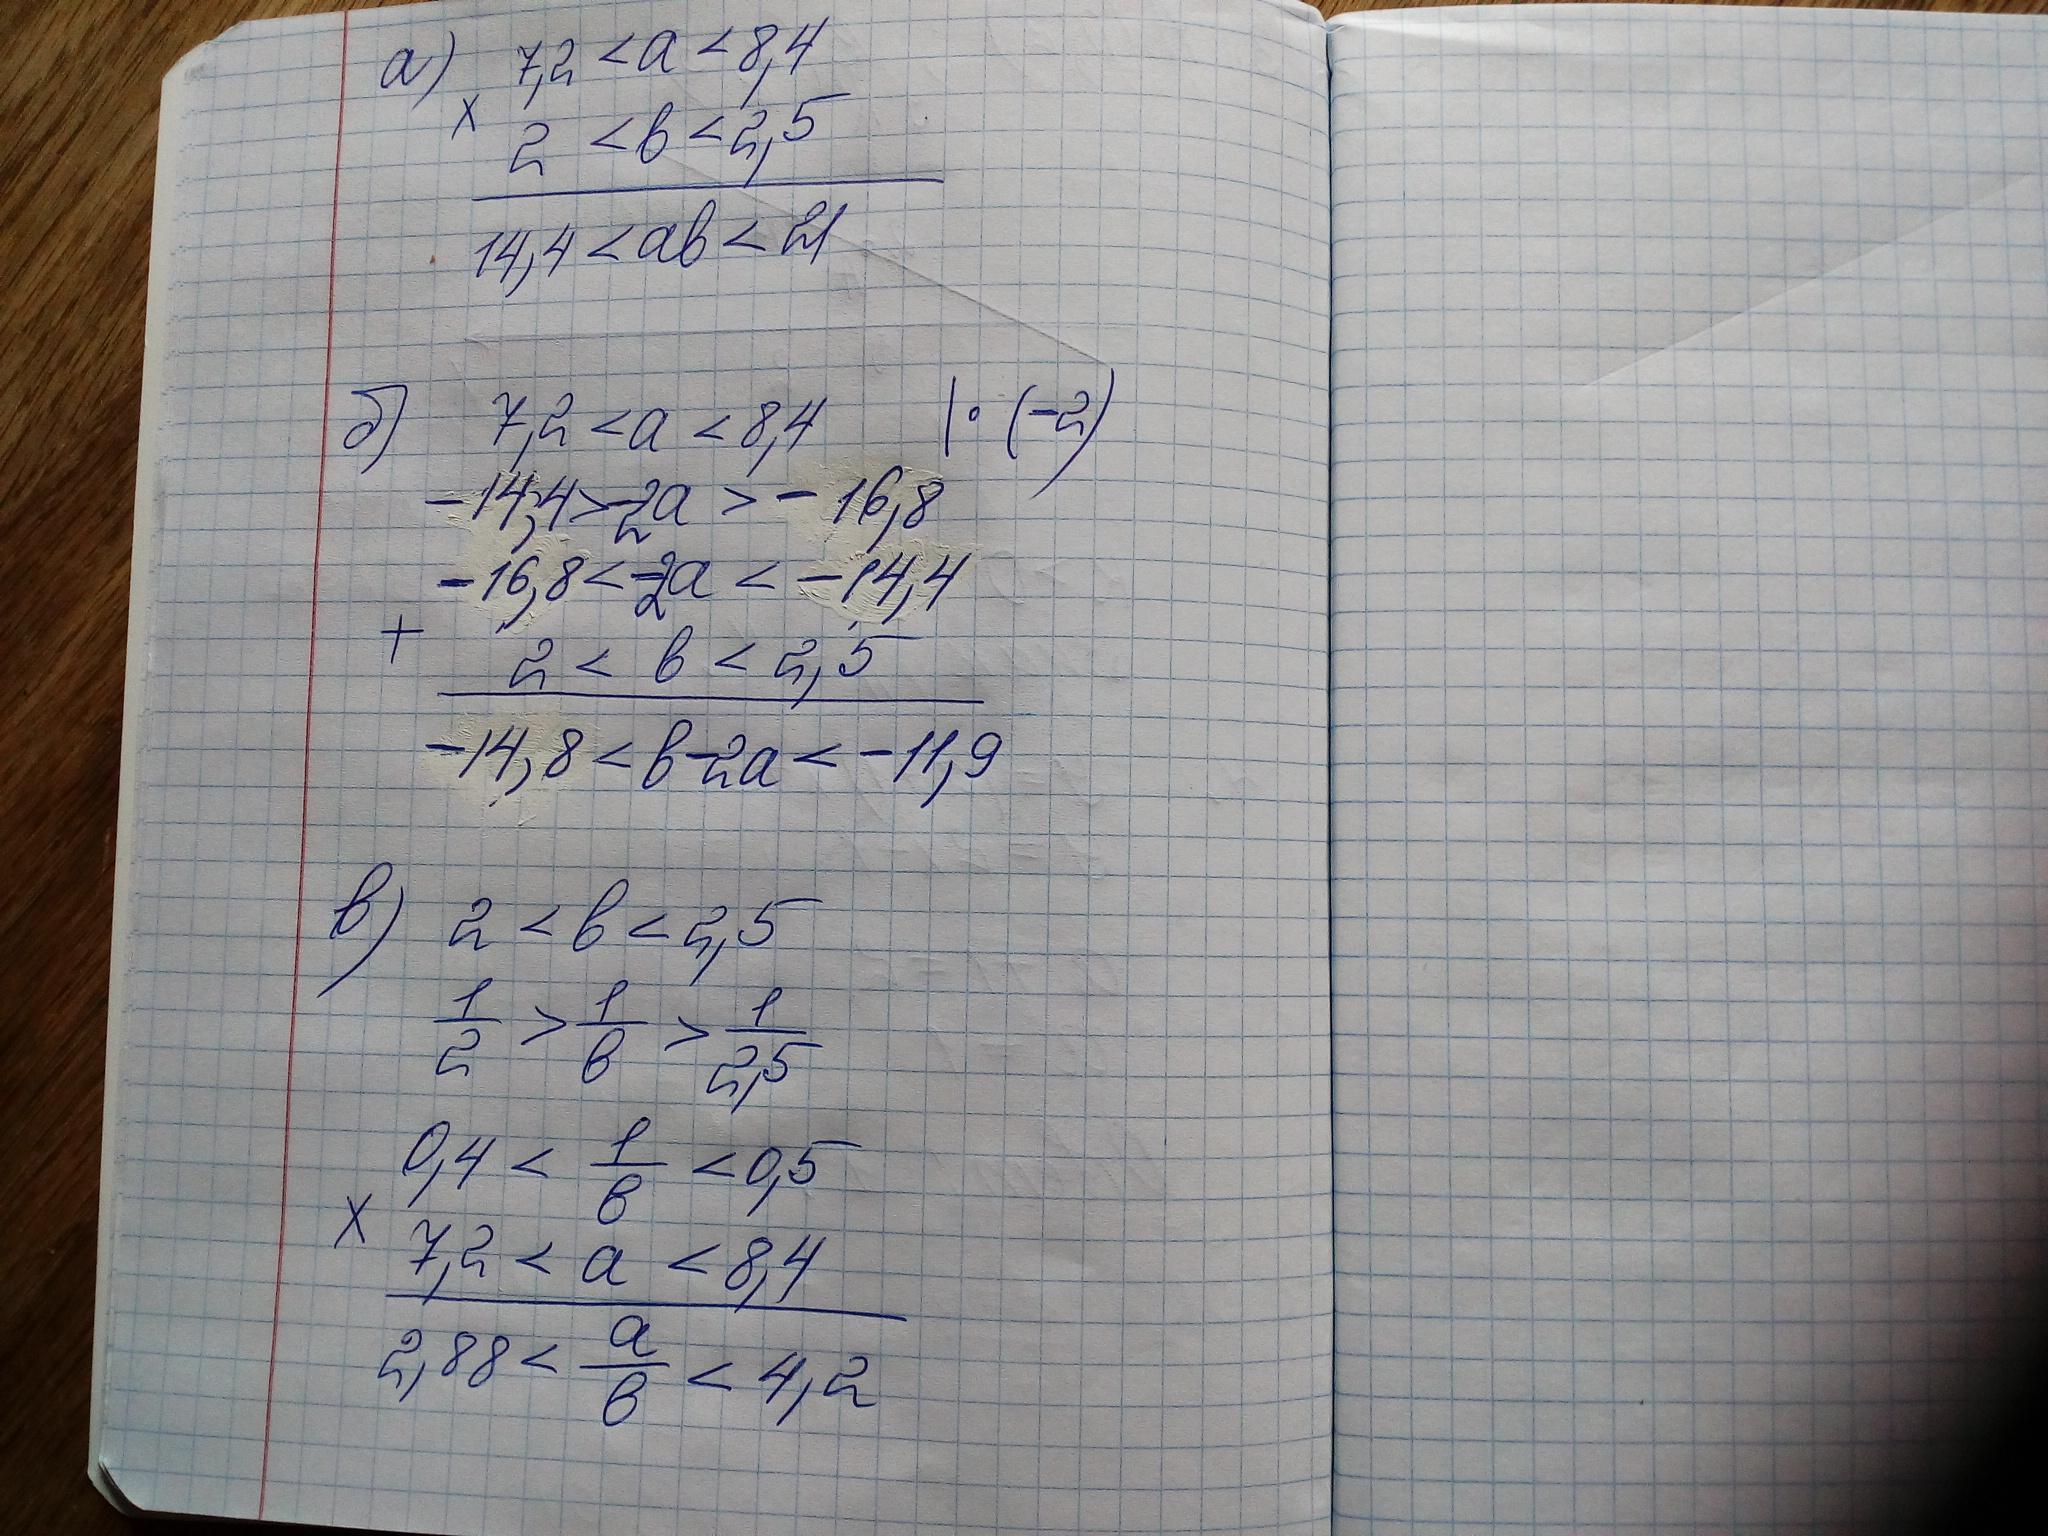 а) 7,2 < а < 8,4
× 2 < в < 2,5
14,4 < ав < 21
б) 7,2 < а < 8,4 | · (-2)
-14,4 > -2а > -16,8
-16,8 < -2а < -14,4
+ 2 < в < 2,5
-14,8 < в-2а < -11,9
в) 2 < в < 2,5
1/2 > 1/в > 1/2,5
0,4 < 1/в < 0,5
× 7,2 < а < 8,4
2,88 < а/в < 4,2